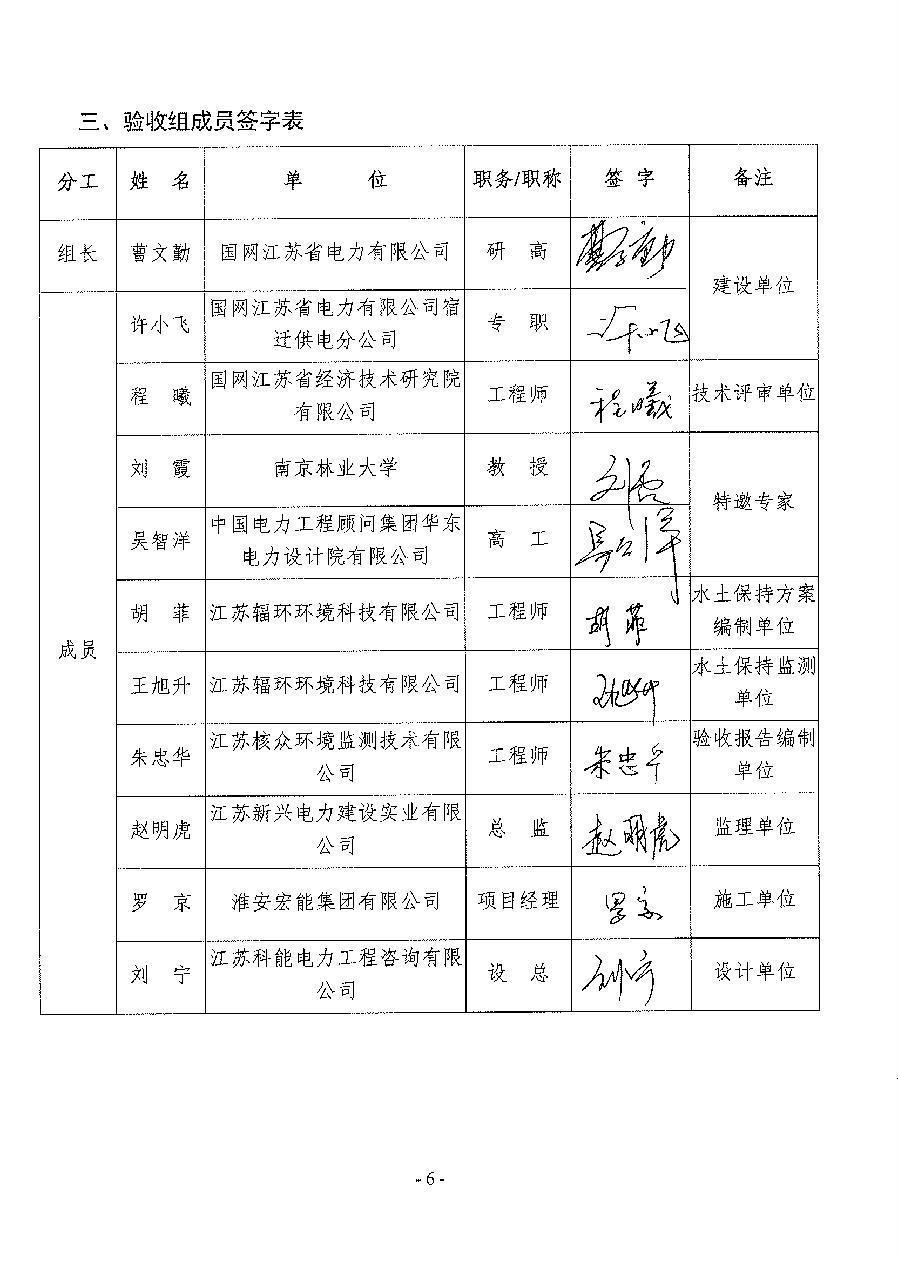 三、验收组成员签字表
分工 姓 名 单 位 职务/职称 签 字 备注
组长 曹文勤 国网江苏省电力有限公司 研 高 建设单位
许小飞 国网江苏省电力有限公司宿
迁供电分公司 专 职 许小飞
程 曦 国网江苏省经济技术研究院
有限公司 工程师 程曦 技术评审单位
刘 霞 南京林业大学 教 授 刘霞 特邀专家
吴智洋 中国电力工程顾问集团华东
电力设计院有限公司 高 工
成员
胡 菲 江苏辐环环境科技有限公司 工程师 胡菲 水土保持方案
编制单位
王旭升 江苏辐环环境科技有限公司 工程师 水土保持监测
单位
朱忠华 江苏核众环境监测技术有限
公司 工程师 朱忠华 验收报告编制
单位
赵明虎 江苏新兴电力建设实业有限
公司 总 监 赵明虎 监理单位
罗 京 淮安宏能集团有限公司 项目经理 罗京 施工单位
刘 宁 江苏科能电力工程咨询有限
公司 设 总 刘宁 设计单位
- 6 -